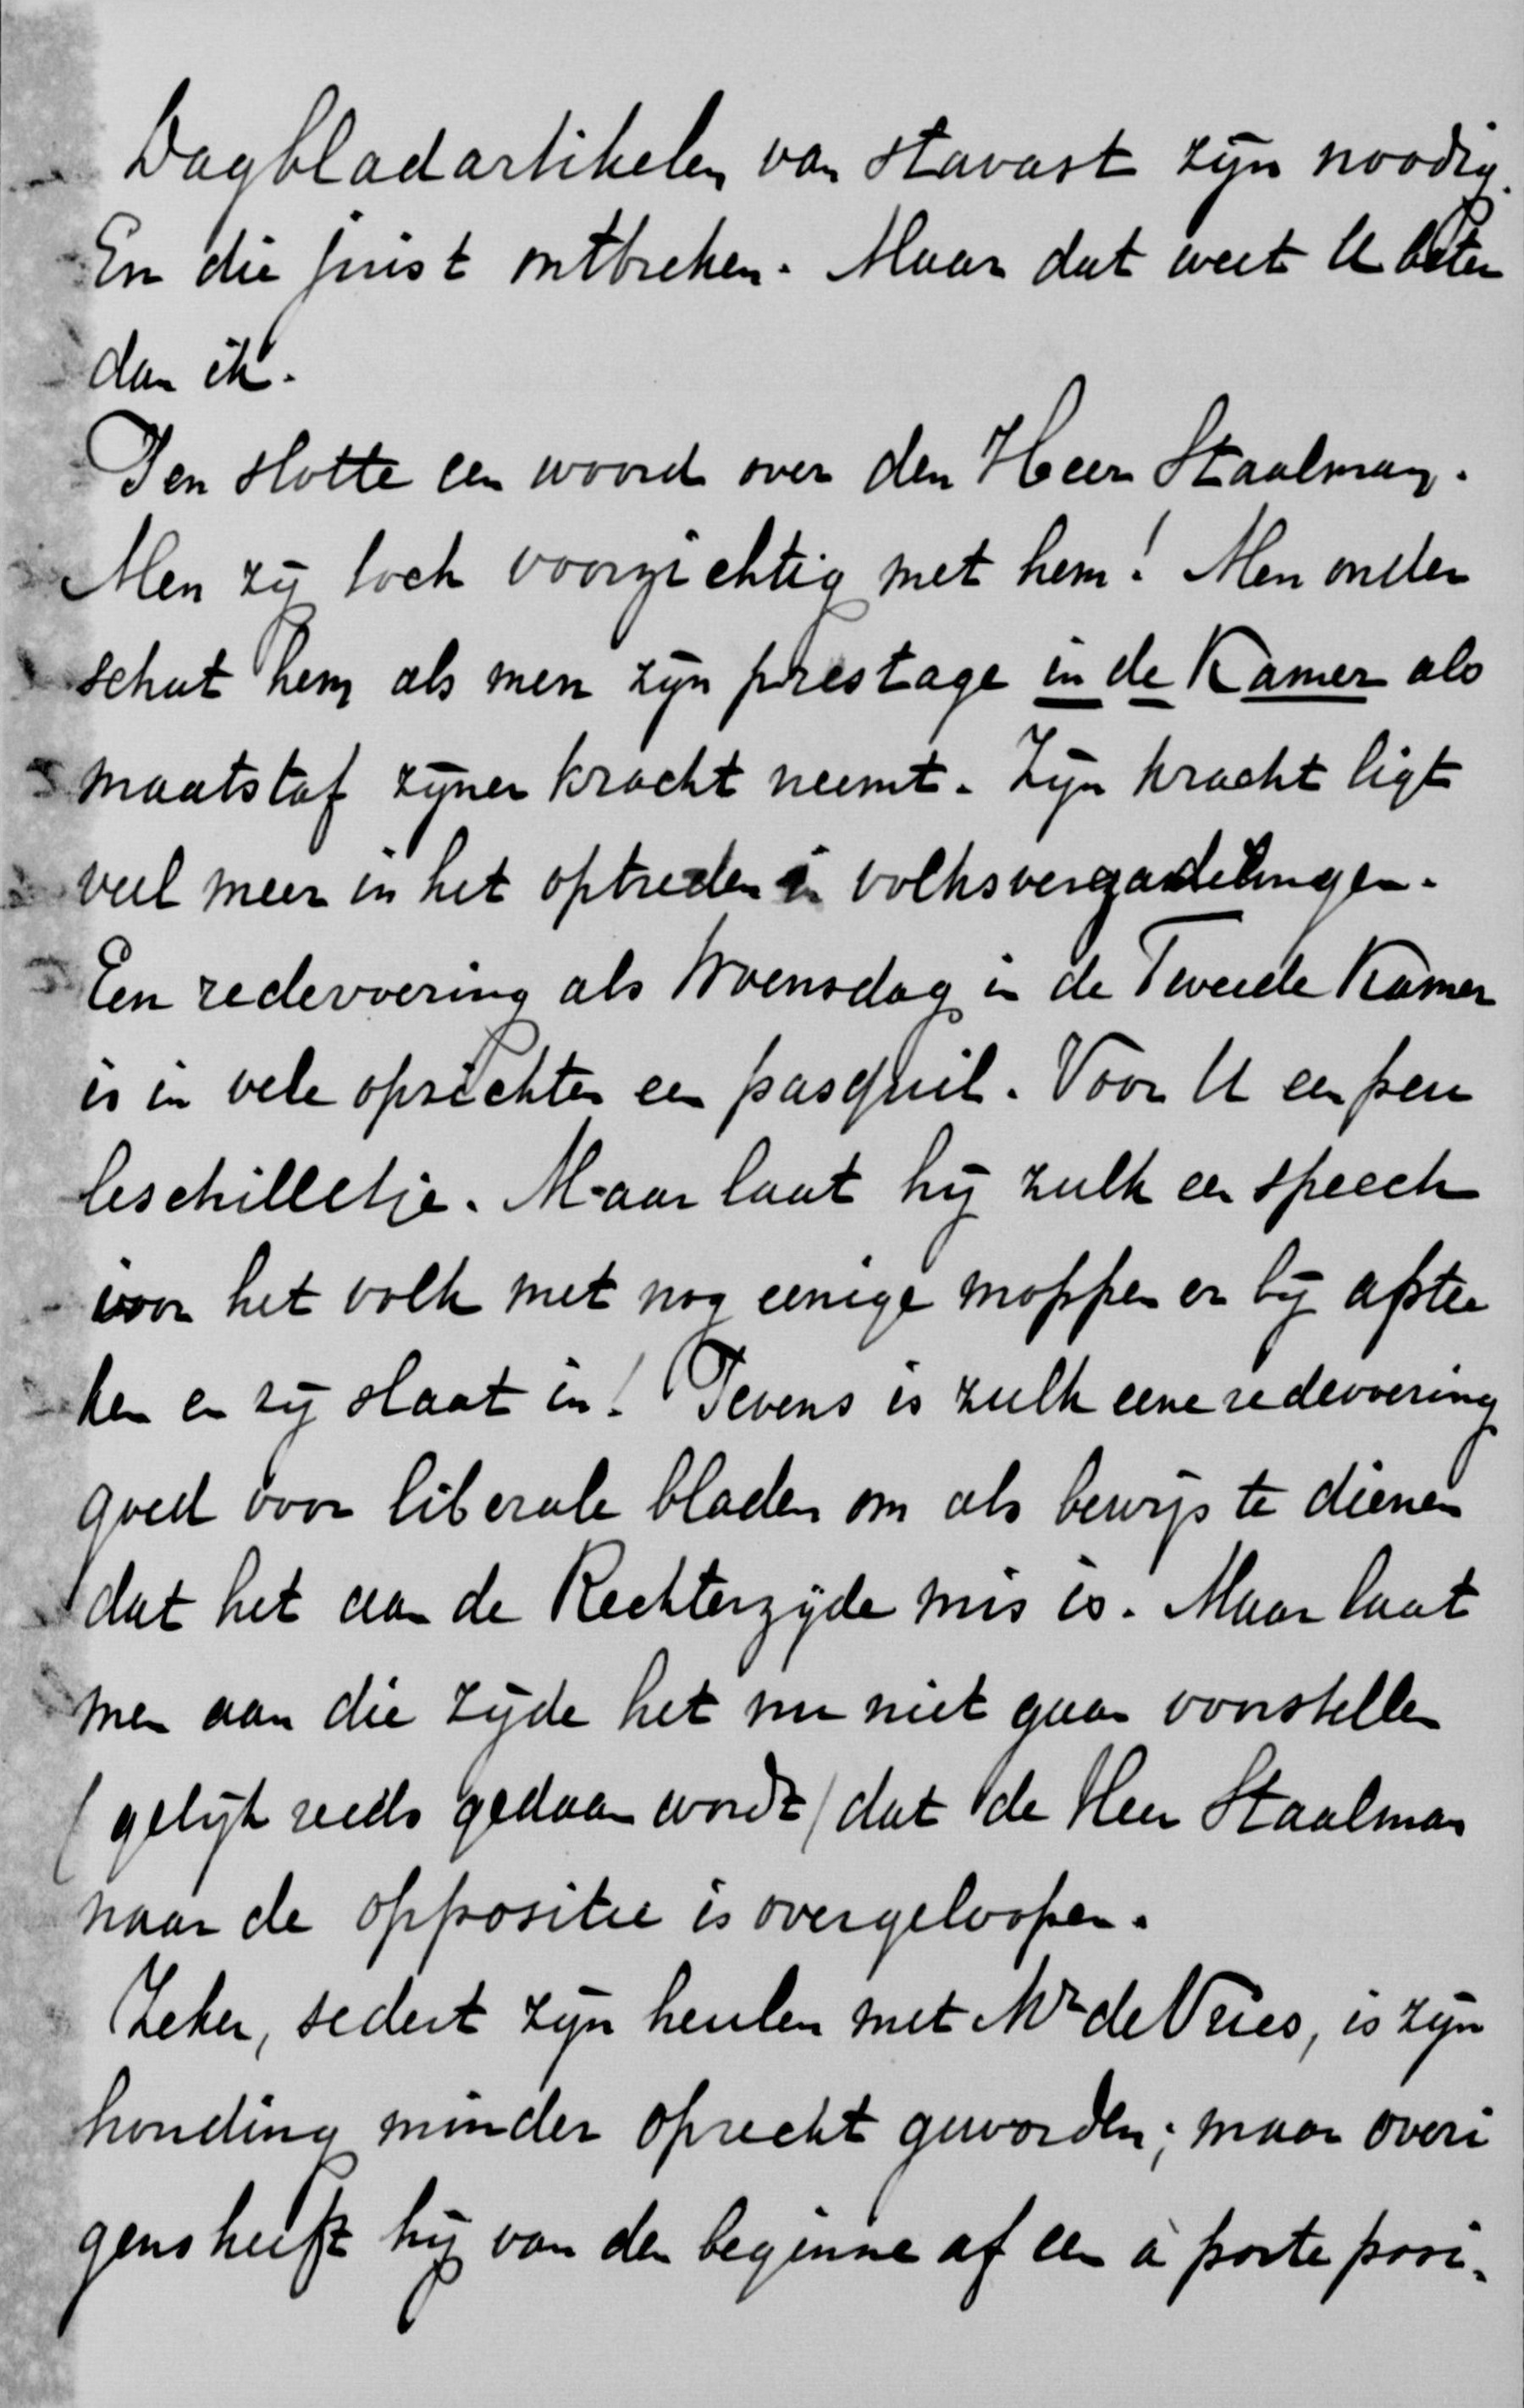 Dagbladartikelen van stavast zijn noodig.
En die juist ontbreken. Maar dat weet U beter
dan ik.
Ten slotte een woord over den Heer Staalman.
Men zij toch voorzichtig met hem! Men onder
schat hem als men zijn prestage in de Kamer als
maatstaf zijner kracht neemt. Zijn kracht ligt
veel meer in het optreden in volksvergaderingen.
Een redevoering als Woensdag in de Tweede Kamer
is in vele opzichten een pasquil. Voor U een peu
leschilletje. Maar laat hij zulk een speech
voor het volk met nog eenige moppen er bij afste
ken en zij slaat in! Tevens is zulk eene redevoering
goed voor liberale bladen om als bewijs te dienen
dat het aan de Rechterzijde mis is. Maar laat
men aan die zijde het nu niet gaan voorstellen
(gelijk reeds gedaan wordt) dat de Heer Staalman
naar de oppositie is overgeloopen.
Zeker, sedert zijn heulen met Mr de Vries, is zijn
houding minder oprecht geworden; maar overi
gens heeft hij van den beginne af een à parte posi-